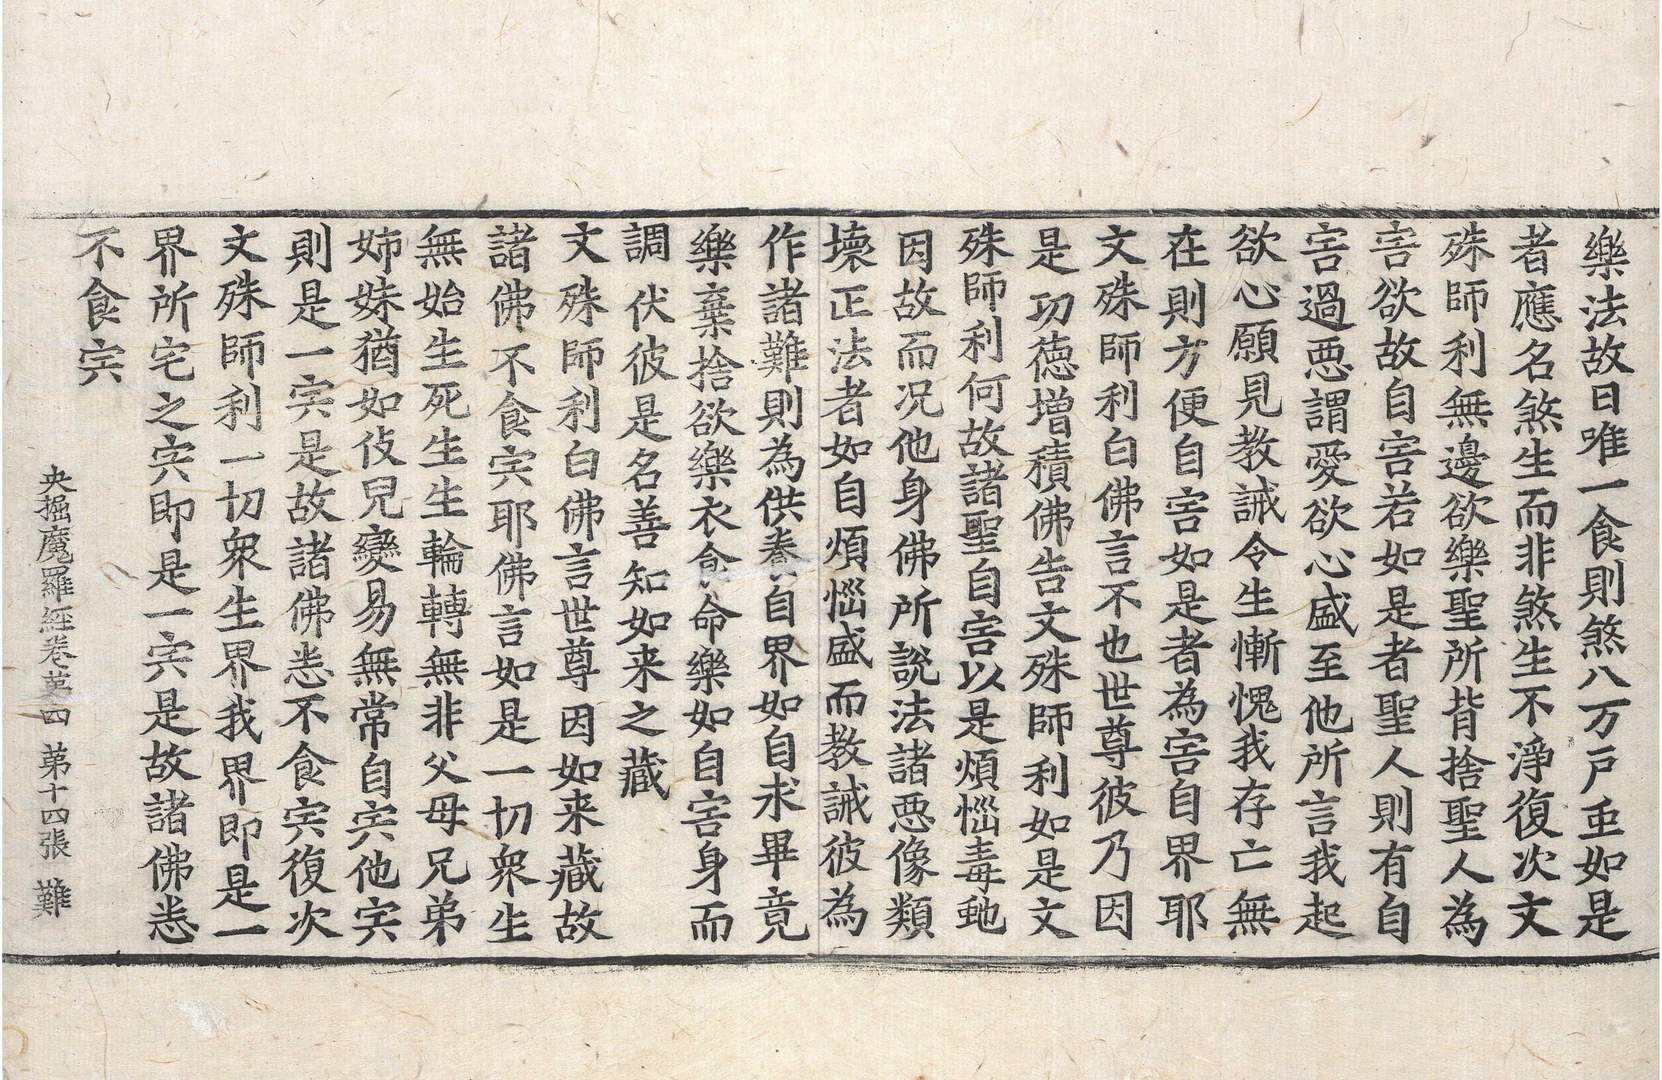 樂法故日唯一食則煞八万戶虫如是
者應名煞生而非煞生不淨復次文
殊師利無邊欲樂聖所背捨聖人為
害欲故自害若如是者聖人則有自
害過惡謂愛欲心盛至他所言我起
欲心願見教誡令生慚愧我存亡無
在則方便自害如是者為害自界耶
文殊師利白佛言不也世尊彼乃因
是功德增積佛告文殊師利如是文
殊師利何故諸聖自害以是煩惱毒虵
因故而況他身佛所說法諸惡像類
壞正法者如自煩惱盛而教誡彼為
作諸難則為供養自界如自求畢竟
樂棄捨欲樂衣食命樂如自害身而
調伏彼是名善知如来之藏
文殊師利白佛言世尊因如来藏故
諸佛不食宍耶佛言如是一切眾生
無始生死生生輪轉無非父母兄弟
姉妹猶如伎兒變易無常自宍他宍
則是一宍是故諸佛悉不食宍復次
文殊師利一切眾生界我界即是一
界所宅之宍即是一宍是故諸佛悉
不食宍
央掘魔羅經卷苐四 苐十四張 難